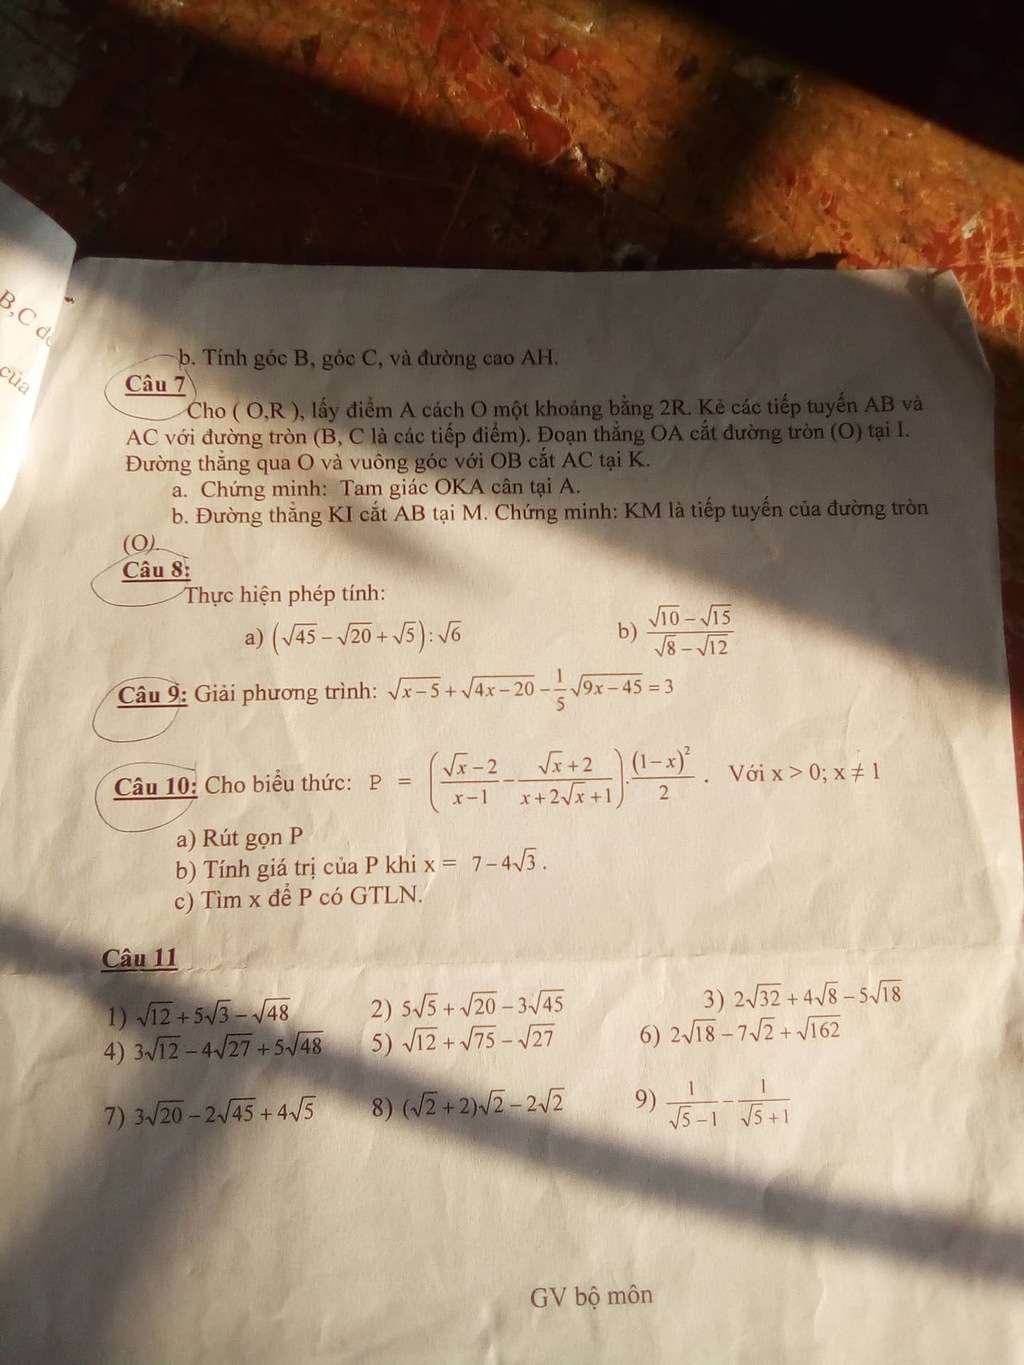 B,C để
của
b. Tính góc B, góc C, và đường cao AH.
Câu 7
Cho ( O,R ), lấy điểm A cách O một khoảng bằng 2R. Kẻ các tiếp tuyến AB và
AC với đường tròn (B, C là các tiếp điểm). Đoạn thẳng OA cắt đường tròn (O) tại I.
Đường thẳng qua O và vuông góc với OB cắt AC tại K.
a. Chứng minh: Tam giác OKA cân tại A.
b. Đường thẳng KI cắt AB tại M. Chứng minh: KM là tiếp tuyến của đường tròn
(O).
Câu 8:
Thực hiện phép tính:
a) (√45 − √20 + √5) : √6 b) (√10 − √15)/(√8 − √12)
Câu 9: Giải phương trình: √(x−5) + √(4x−20) − 1/5 √(9x−45) = 3
Câu 10: Cho biểu thức: P = ((√x−2)/(x−1) − (√x+2)/(x+2√x+1)) . (1−x)²/2 . Với x > 0; x ≠ 1
a) Rút gọn P
b) Tính giá trị của P khi x = 7−4√3 .
c) Tìm x để P có GTLN.
Câu 11
1) √12 + 5√3 − √48 2) 5√5 + √20 − 3√45 3) 2√32 + 4√8 − 5√18
4) 3√12 − 4√27 + 5√48 5) √12 + √75 − √27 6) 2√18 − 7√2 + √162
7) 3√20 − 2√45 + 4√5 8) (√2 + 2)√2 − 2√2 9) 1/(√5−1) − 1/(√5+1)
GV bộ môn